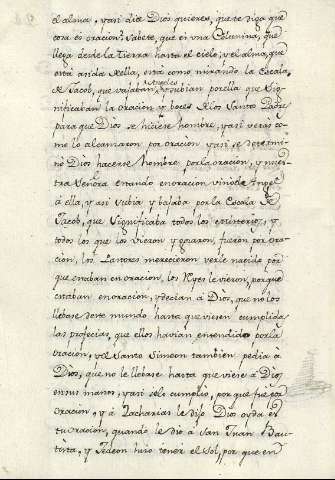 el alma, y asi dia Dios quieres, que te diga que
cosa es oracion? Sabete, que es una Columna, que
llega desde la tierra hasta el cielo; y el alma, que
esta asida della, está como mirando la Escala
de Jacob, que vajaban, y subian Angeles por ella que Sig-
nificaban la oracion, y boces de los Santos Padres
para que Dios se hiciese hombre, y asi verás co-
mo lo alcansaron por oracion y asi se determi-
nó Dios hacerse hombre por la oracion, y nues-
tra Señora estando en oracion vino el Angel
á ella, y asi subia y bajaba por la Escala de
Jacob, que Significaba todos los misterios, y
todos los que lo vieron y gozaron fueron por ora-
cion, los Pastores merecieron verle nacido por
que estaban en oracion, los Reyes le vieron, porque
estaban en oracion, y decian á Dios, que no los
llebase deste mundo hasta que viesen cumplidas
las profecias, que ellos havian entendido por la
oracion, y el Santo Simeon tambien pedia á
Dios, que no le llebase hasta que viese á Dios
en sus manos, y asi se le cumplió, por que fue por
oracion, y á Zacharias le dijo Dios oyda es
tu oracion, quando le dió á San Juan Bau-
tista, y Jedeon hizo tener el Sol, por que en